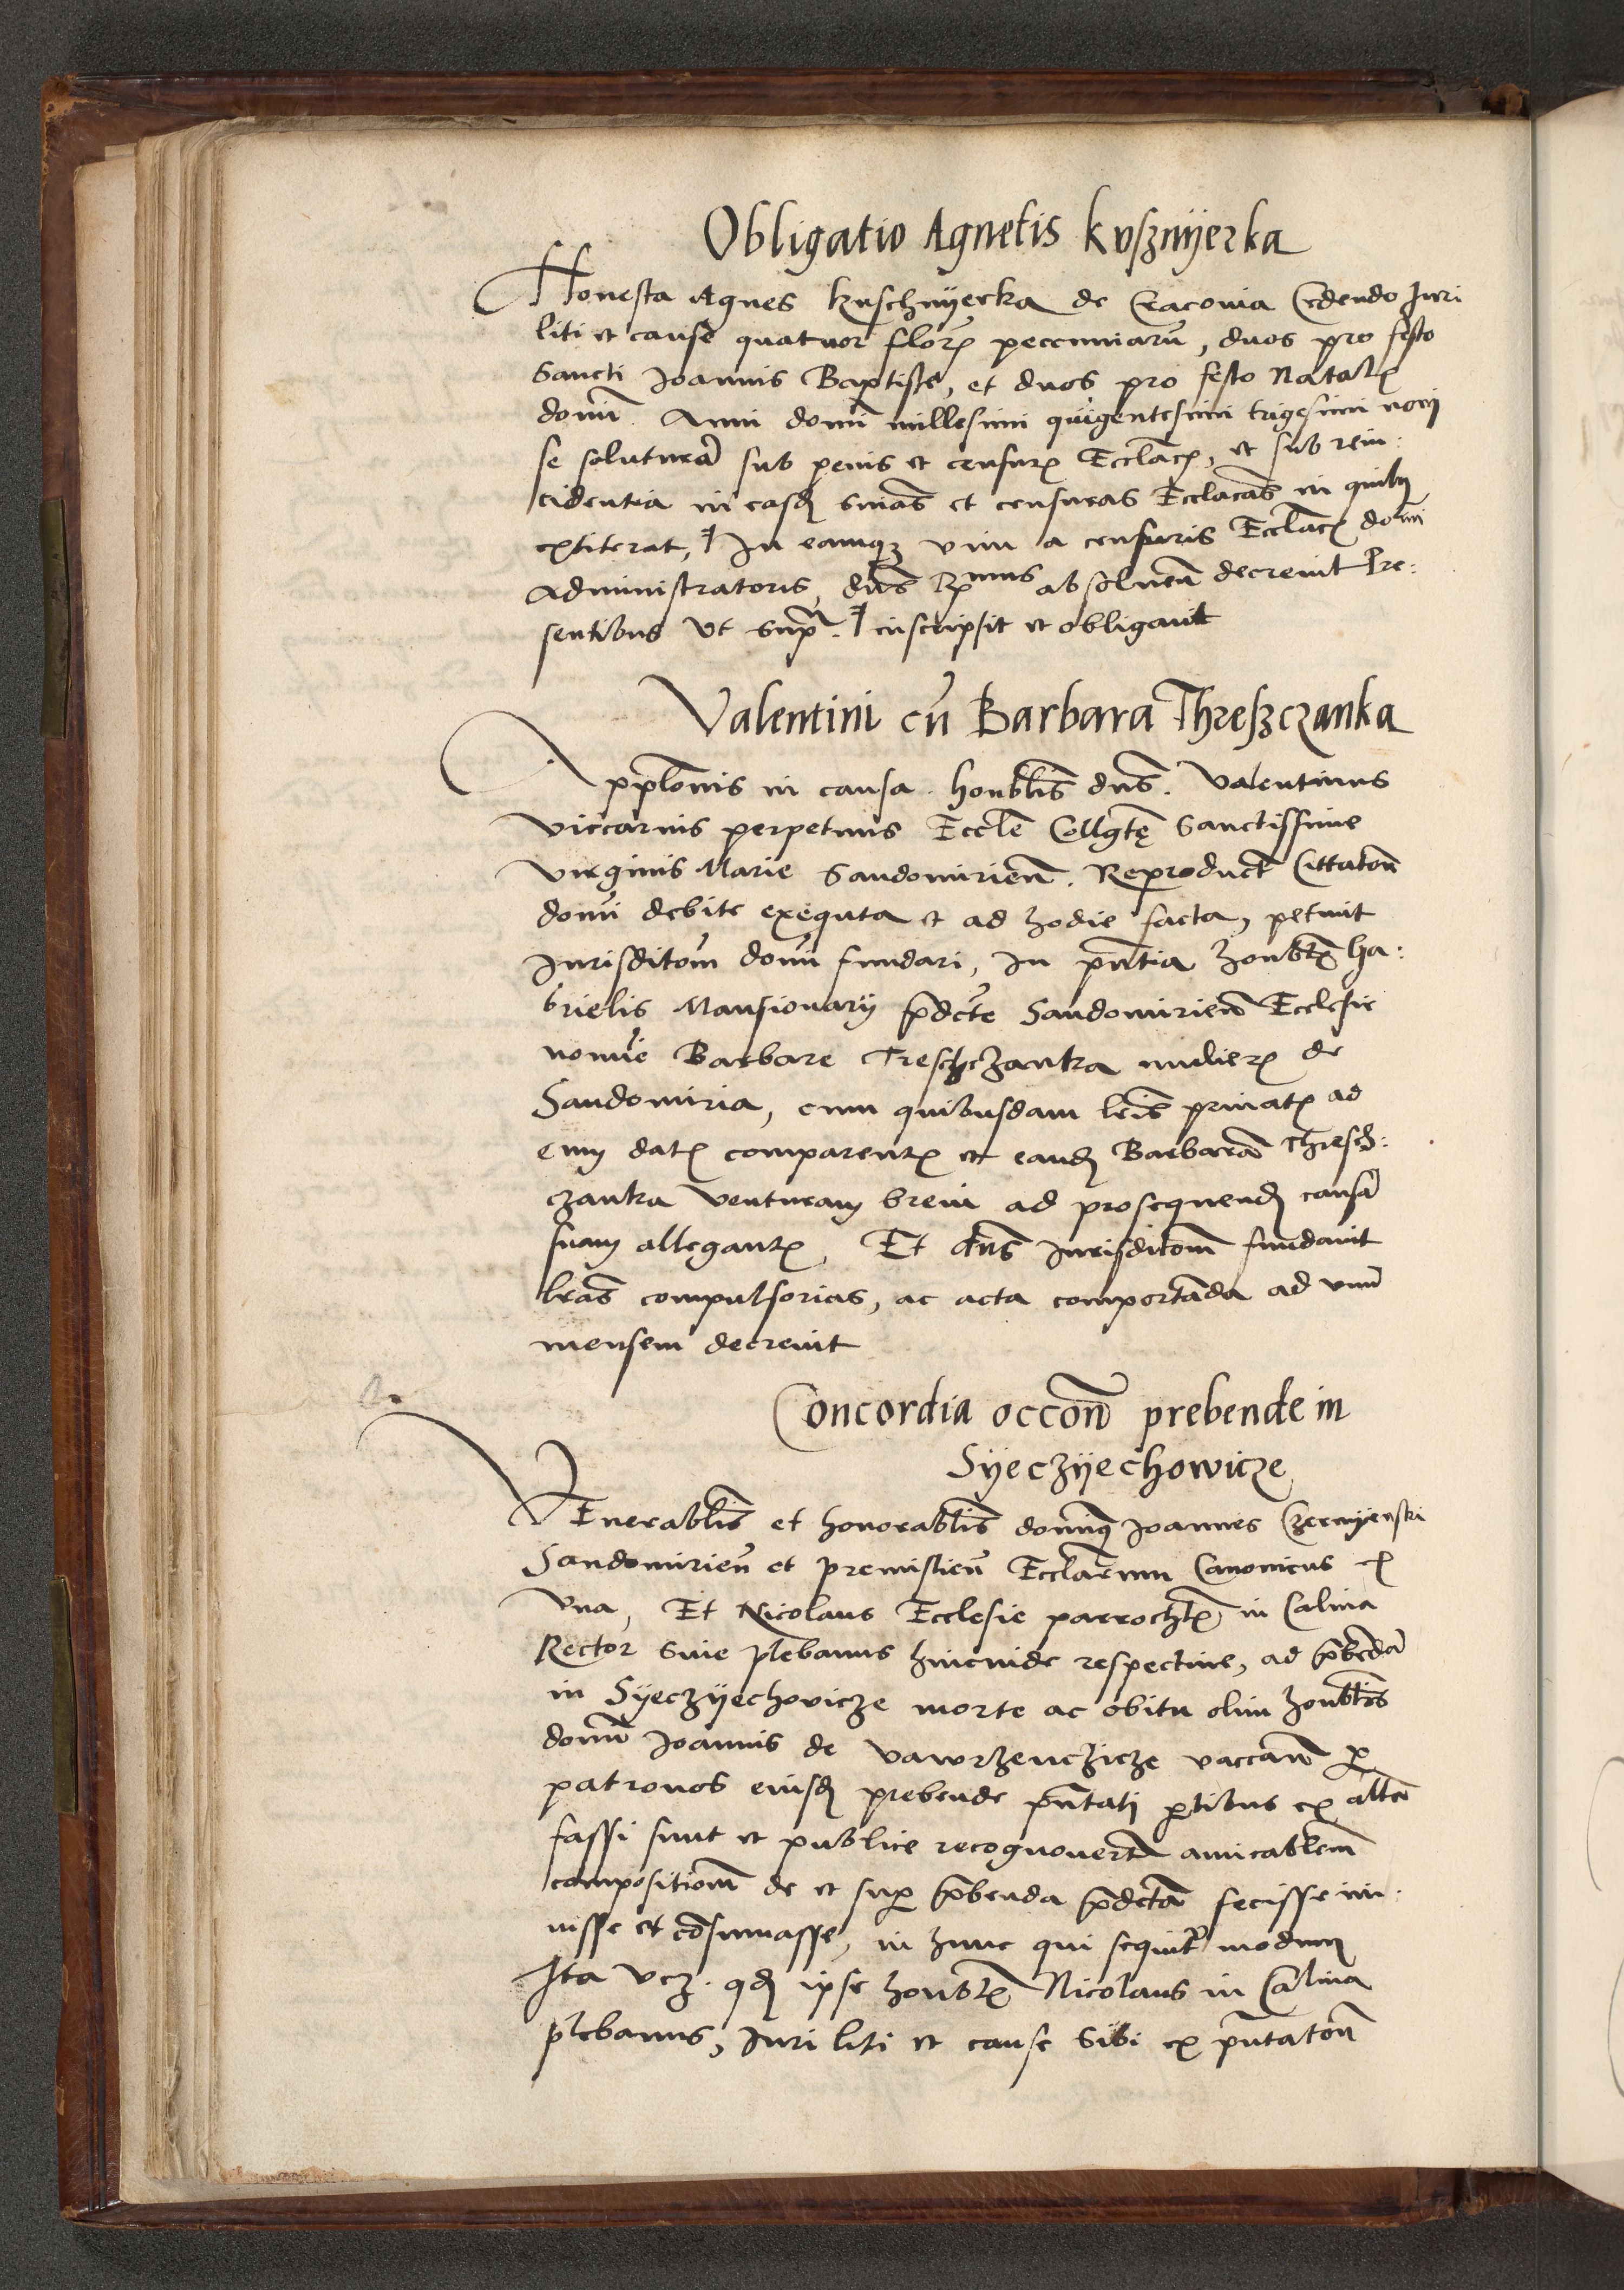 Obligatio Agnetis kvsznÿerka
Honesta Agnes kuschnÿerka de Cracouia Cedendo Iuri
liti et cause quatuor floreñ peccuniarũ, duos pro festo
Sancti Joannis Baptiste, et duos pro festo Natalis
domĩ. Anni domĩ millesimi quĩgentesimi trigesimi noni
se soluturã sub penis et censuris Ecclãcis, et sub rein:
cidentia in easdem sñias et censuras Ecclãcas in quibus
extiterat, † In eamque vim a censuris Ecclãcis domĩ
Administratoris, dñs Rmus absoluend decreuit Pre:
sentibus Vt supra. † inscripsit et obligauit
Valentini cũ Barbara Threszczanka
Applõnis in causa. honblis dñs. Valentinus
viccarius perpetuus Eccle Collgtę Sanctissime
virginis Marie Sandomirieñ. Reproduct Cittatõm
domĩ debite exequta et ad hodie facta, petiuit
Jurisditõm domĩ fundari, In pñtia honblis Ga:
brielis Mansionarij predcte Sandomirieñ Ecclesie
nomĩe Barbare Treschczanka mulieris de
Sandomiria, cum quibusdam lris priuatis ad
eum datis comparentis et eandem Barbarã Thresch:
czanka venturam breui ad prosequendam causã
suam allegantis, Et dñs Jurisditõm fundauit
lras compulsorias, ac acta comportãda ad vnũ
mensem decreuit
Concordia occõne prebende in
Sÿeczÿechowicze
VEnerablis et honorablis dominus Joannes Czernÿenski
Sandomirieñ et premislieñ Ecclarum Canonicus ex
vna, Et Nicolaus Ecclesie parrochlis in Calina
Rector siue plebanus hincinde respectiue, ad prebendã
in Sÿeczÿechovicze morte ac obitu olim honblis
domĩ Joannis de vawrzenczicze vaccañ per
patronos eiusdem prebende pñtati partibus ex altera
fassi sunt et publice recognouerũt amicablem
compositionẽ de et super prebenda predctã fecisse ini:
uisse et cõsumasse, in hunc qui sequitur modum
Ita vcz. quod ipse honblis Nicolaus in Calina
plebanus, Iuri liti et cause sibi ex pñtatõne